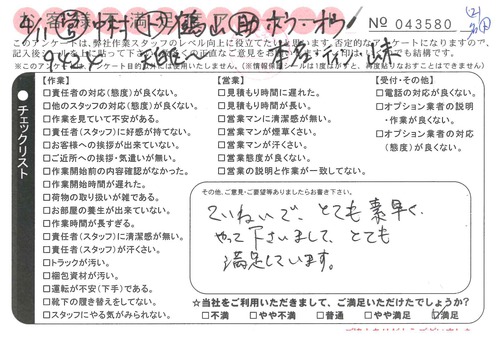 No 043580
このアンケートは、弊社作業スタッフのレベル向上に役立てたいと思います。否定的なアンケートになりますので、
【作業】
□責任者の対応(態度)が良くない。
□他のスタッフの対応(態度)が良くない。
□作業を見ていて不安がある。
□責任者(スタッフ)に好感が持てない。
□お客様への挨拶が出来ていない。
□ご近所への挨拶・気遣いが無い。
□作業開始前の内容確認がなかった。
□作業開始時間が遅れた。
□荷物の取り扱いが雑である。
□お部屋の養生が出来ていない。
□作業時間が長すぎる。
□責任者(スタッフ)に清潔感が無い。
□責任者(スタッフ)が汗くさい。
□トラックが汚い。
□梱包資材が汚い。
□運転が不安(下手)である。
□靴下の履き替えをしてない。
□スタッフにやる気がみられない。
【営業】
□見積もり時間に遅れた。
□見積もり時間が長い。
□営業マンに清潔感が無い。
□営業マンが煙草くさい。
□営業マンが汗くさい。
□営業態度が良くない。
□営業の説明と作業が一致してない。
【受付・その他】
□電話の対応が良くない。
□オプション業者の説明
・作業が良くない。
□オプション業者の対応
(態度)が良くない。
チェックリスト
その他、ご意見・ご要望等ありましたらお書き下さい。
ていねいで、とても素早く
やって下さいまして、とても
満足しています。
☆当社をご利用いただきまして、ご満足いただけたでしょうか?
□不満 □やや不満 □普通 □やや満足 □満足